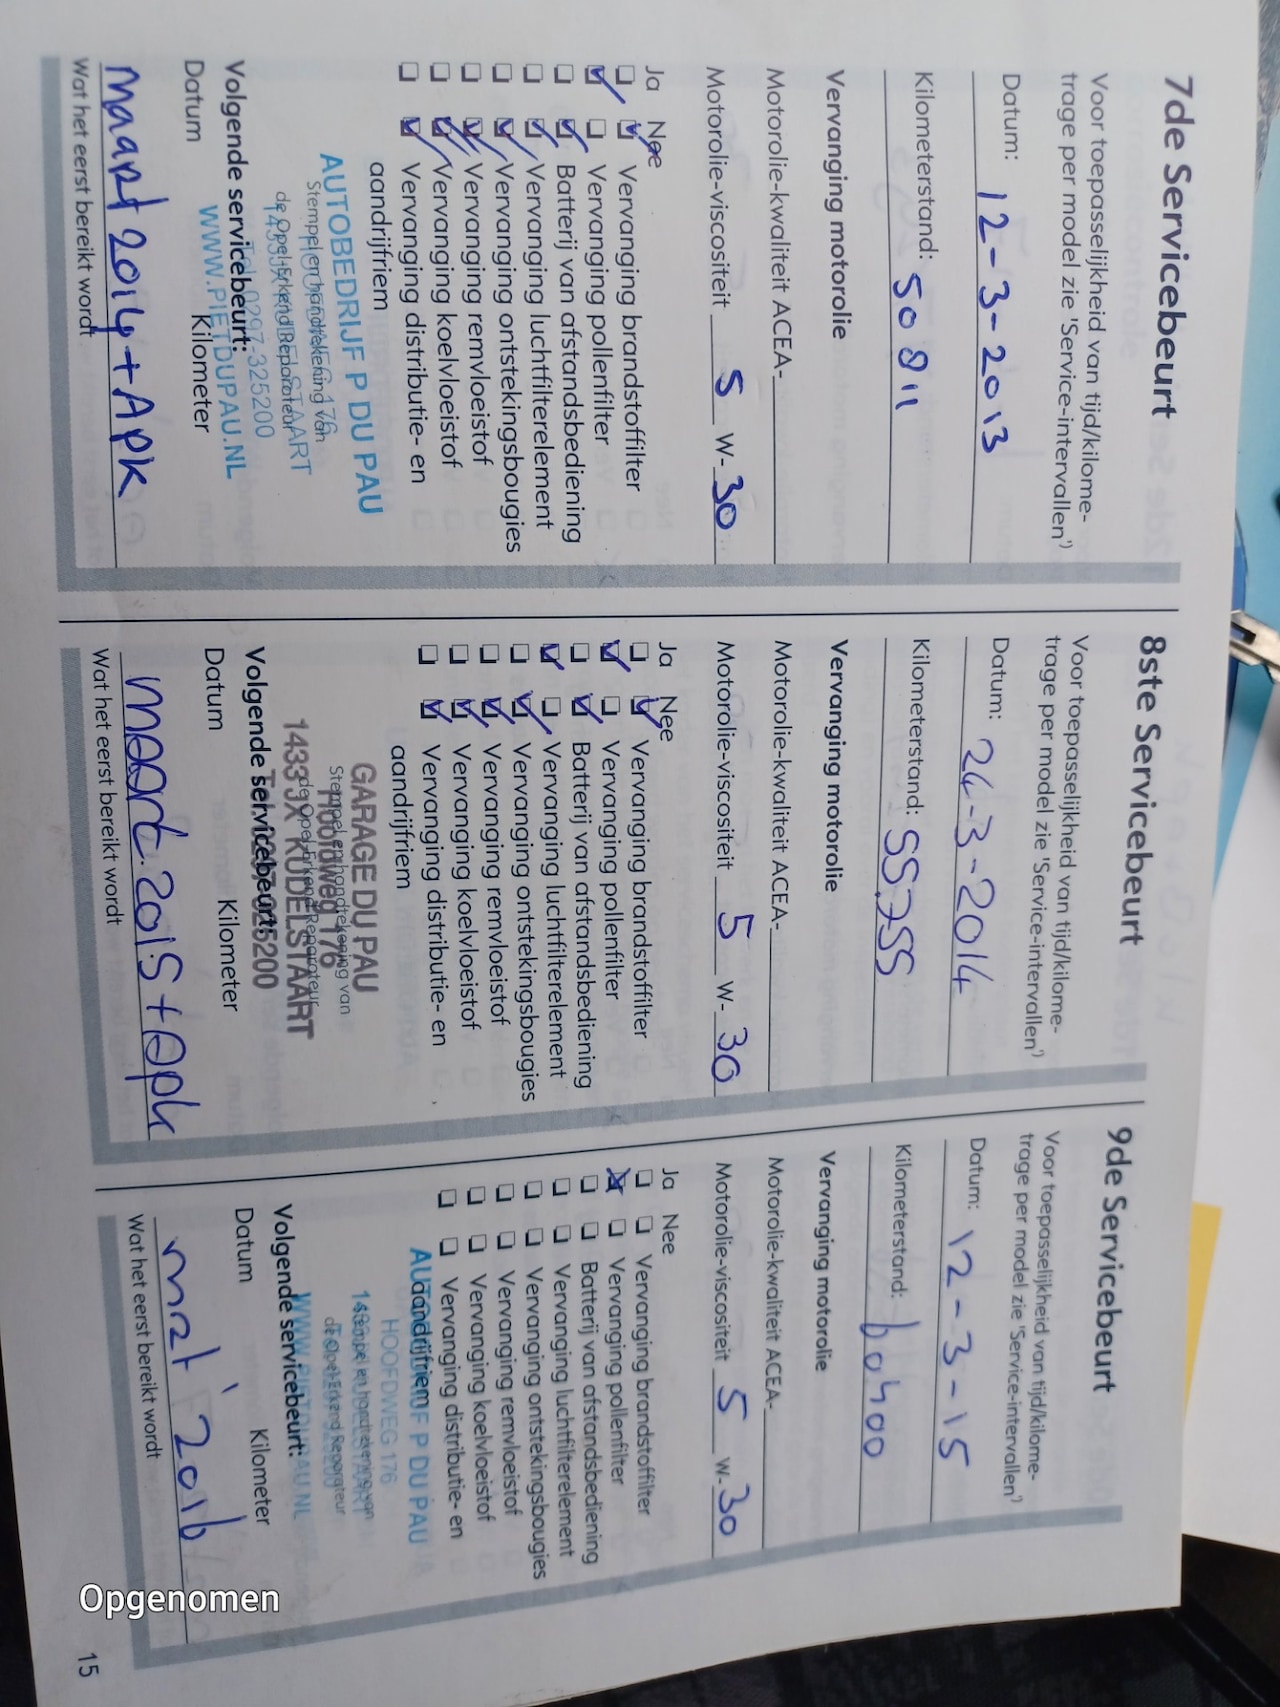 7de Servicebeurt
Voor toepasselijkheid van tijd/kilome-
trage per model zie 'Service-intervallen')
Datum: 12-3-2013
Kilometerstand: 50811
Vervanging motorolie
Motorolie-kwaliteit ACEA-
Motorolie-viscositeit 5 W-30
Ja Nee
Vervanging brandstoffilter
Vervanging pollenfilter
Batterij van afstandsbediening
Vervanging luchtfilterelement
Vervanging ontstekingsbougies
Vervanging remvloeistof
Vervanging koelvloeistof
Vervanging distributie- en
aandrijfriem
AUTOBEDRIJF P DU PAU
Stempel en handtekening van
de Opel Erkend Reparateur
0297-325200
WWW.PIETDUPAU.NL
Volgende servicebeurt:
Datum Kilometer
maart 2014 + APK
Wat het eerst bereikt wordt
8ste Servicebeurt
Voor toepasselijkheid van tijd/kilome-
trage per model zie 'Service-intervallen')
Datum: 24-3-2014
Kilometerstand: 55.755
Vervanging motorolie
Motorolie-kwaliteit ACEA-
Motorolie-viscositeit 5 W-30
Ja Nee
Vervanging brandstoffilter
Vervanging pollenfilter
Batterij van afstandsbediening
Vervanging luchtfilterelement
Vervanging ontstekingsbougies
Vervanging remvloeistof
Vervanging koelvloeistof
Vervanging distributie- en
aandrijfriem
GARAGE DU PAU
Stempel en handtekening van
Hoofdweg 176
de Opel Erkend Reparateur
1433JX KUDELSTAART
Volgende servicebeurt:
Datum Kilometer
maart 2015 + apk
Wat het eerst bereikt wordt
9de Servicebeurt
Voor toepasselijkheid van tijd/kilome-
trage per model zie 'Service-intervallen')
Datum: 12-3-15
Kilometerstand: 60400
Vervanging motorolie
Motorolie-kwaliteit ACEA-
Motorolie-viscositeit 5 W-30
Ja Nee
Vervanging brandstoffilter
Vervanging pollenfilter
Batterij van afstandsbediening
Vervanging luchtfilterelement
Vervanging ontstekingsbougies
Vervanging remvloeistof
Vervanging koelvloeistof
Vervanging distributie- en
aandrijfriem
AUTOBEDRIJF P DU PAU
HOOFDWEG 176
Stempel en handtekening van
de Opel Erkend Reparateur
WWW.PIETDUPAU.NL
Volgende servicebeurt:
Datum Kilometer
mrt 2016
Wat het eerst bereikt wordt
15
Opgenomen